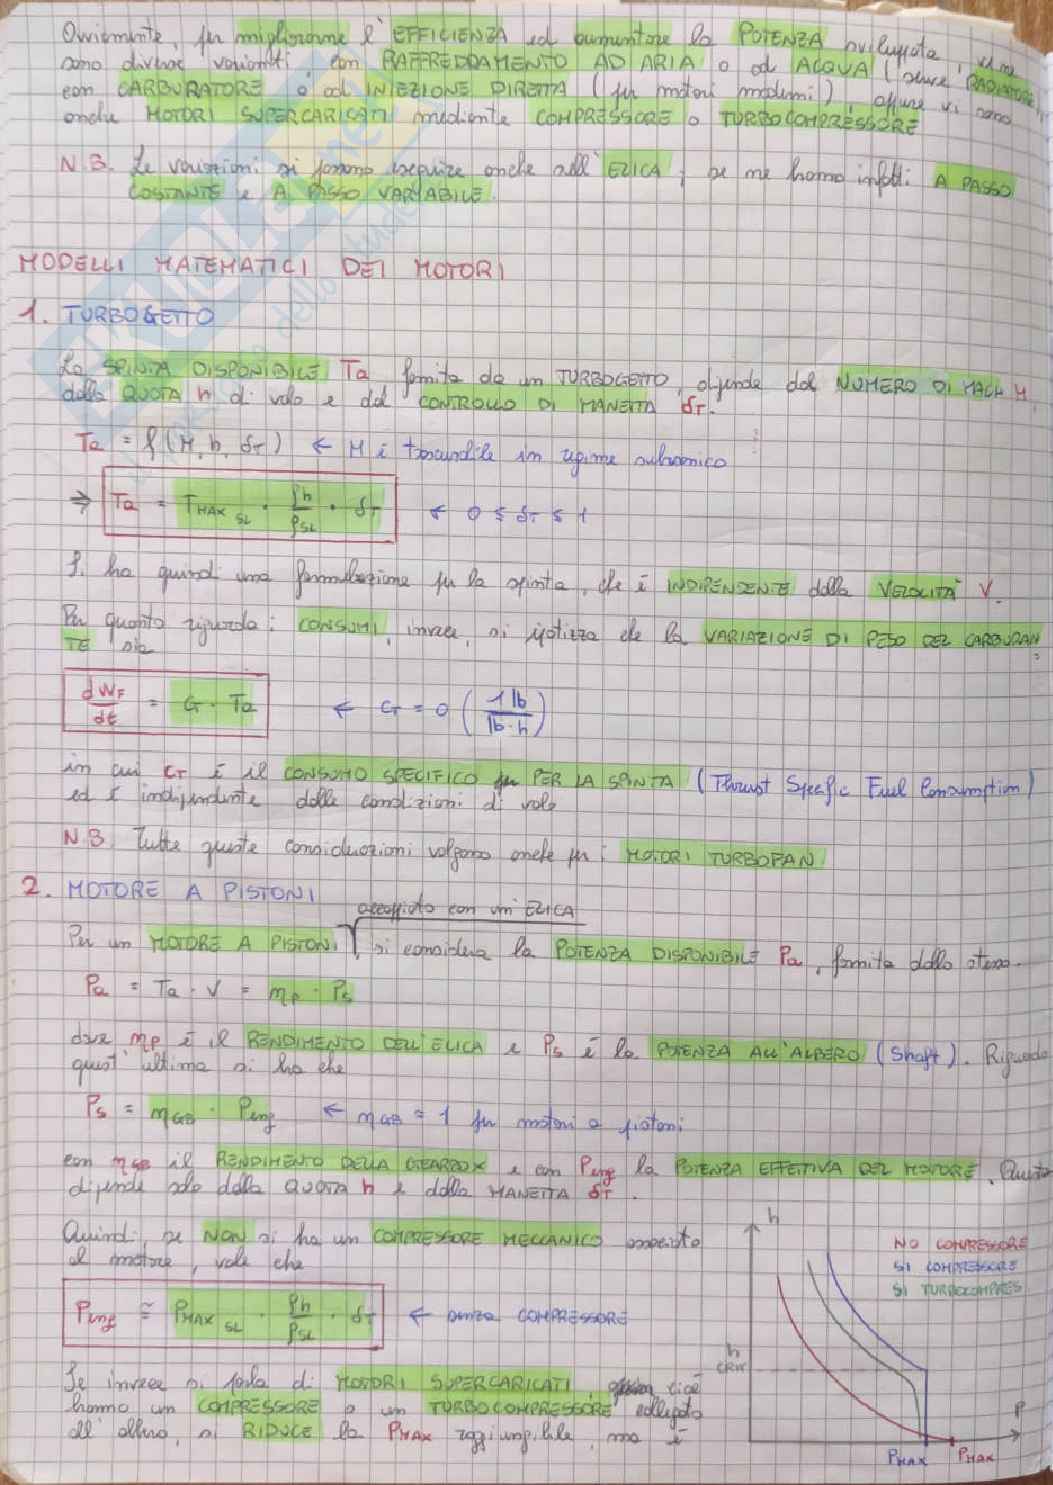 Ovviamente, per migliorarne l'EFFICIENZA ed aumentare la POTENZA sviluppata, ve ne
sono diverse varianti, con RAFFREDDAMENTO AD ARIA o ad ACQUA (serve RADIATORE)
con CARBURATORE o ad INIEZIONE DIRETTA (per motori moderni), oppure vi sono
anche MOTORI SUPERCARICATI mediante COMPRESSORE o TURBOCOMPRESSORE
N.B. Le variazioni si possono eseguire anche all'ELICA, se ne hanno infatti A PASSO
COSTANTE e A PASSO VARIABILE.
MODELLI MATEMATICI DEI MOTORI
1. TURBOGETTO
La SPINTA DISPONIBILE Ta fornita da un TURBOGETTO, dipende dal NUMERO DI MACH M,
dalla QUOTA h di volo e dal CONTROLLO DI MANETTA δT.
Ta = f(M, h, δT) ← M è trascurabile in regime subsonico
⇒ Ta = TMAX SL · ρh/ρSL · δT ← 0 ≤ δT ≤ 1
Si ha quindi una formulazione per la spinta, che è INDIPENDENTE dalla VELOCITÀ V.
Per quanto riguarda i CONSUMI, invece, si ipotizza che la VARIAZIONE DI PESO DEL CARBURAN
TE sia
dWF/dt = CT · Ta ← CT = 0 (1 lb/lb·h)
in cui CT è il CONSUMO SPECIFICO PER LA SPINTA (Thrust Specific Fuel Consumption)
ed è indipendente dalle condizioni di volo
N.B. Tutte queste considerazioni valgono anche per i MOTORI TURBOFAN
2. MOTORE A PISTONI
accoppiato con un'ELICA
Per un MOTORE A PISTONI, si considera la POTENZA DISPONIBILE Pa, fornita dallo stesso.
Pa = Ta · V = ηP · Ps
dove ηP è il RENDIMENTO DELL'ELICA e Ps è la POTENZA ALL'ALBERO (Shaft). Riguardo
quest'ultima si ha che
Ps = ηGB · Peng ← ηGB = 1 per motori a pistoni
con ηGB il RENDIMENTO DELLA GEARBOX e con Peng la POTENZA EFFETTIVA DEL MOTORE. Questa
dipende solo dalla QUOTA h e dalla MANETTA δT.
Quindi, se NON si ha un COMPRESSORE MECCANICO associato
al motore, vale che
Peng ≅ PMAX SL · ρh/ρSL · δT ← senza COMPRESSORE
Se invece si parla di MOTORI SUPERCARICATI, cioè
hanno un COMPRESSORE o un TURBOCOMPRESSORE collegato
all'albero, si RIDUCE la PMAX raggiungibile, ma è
h
NO COMPRESSORE
SI COMPRESSORE
SI TURBOCOMPRES
h
CRIT
P
PMAX PMAX